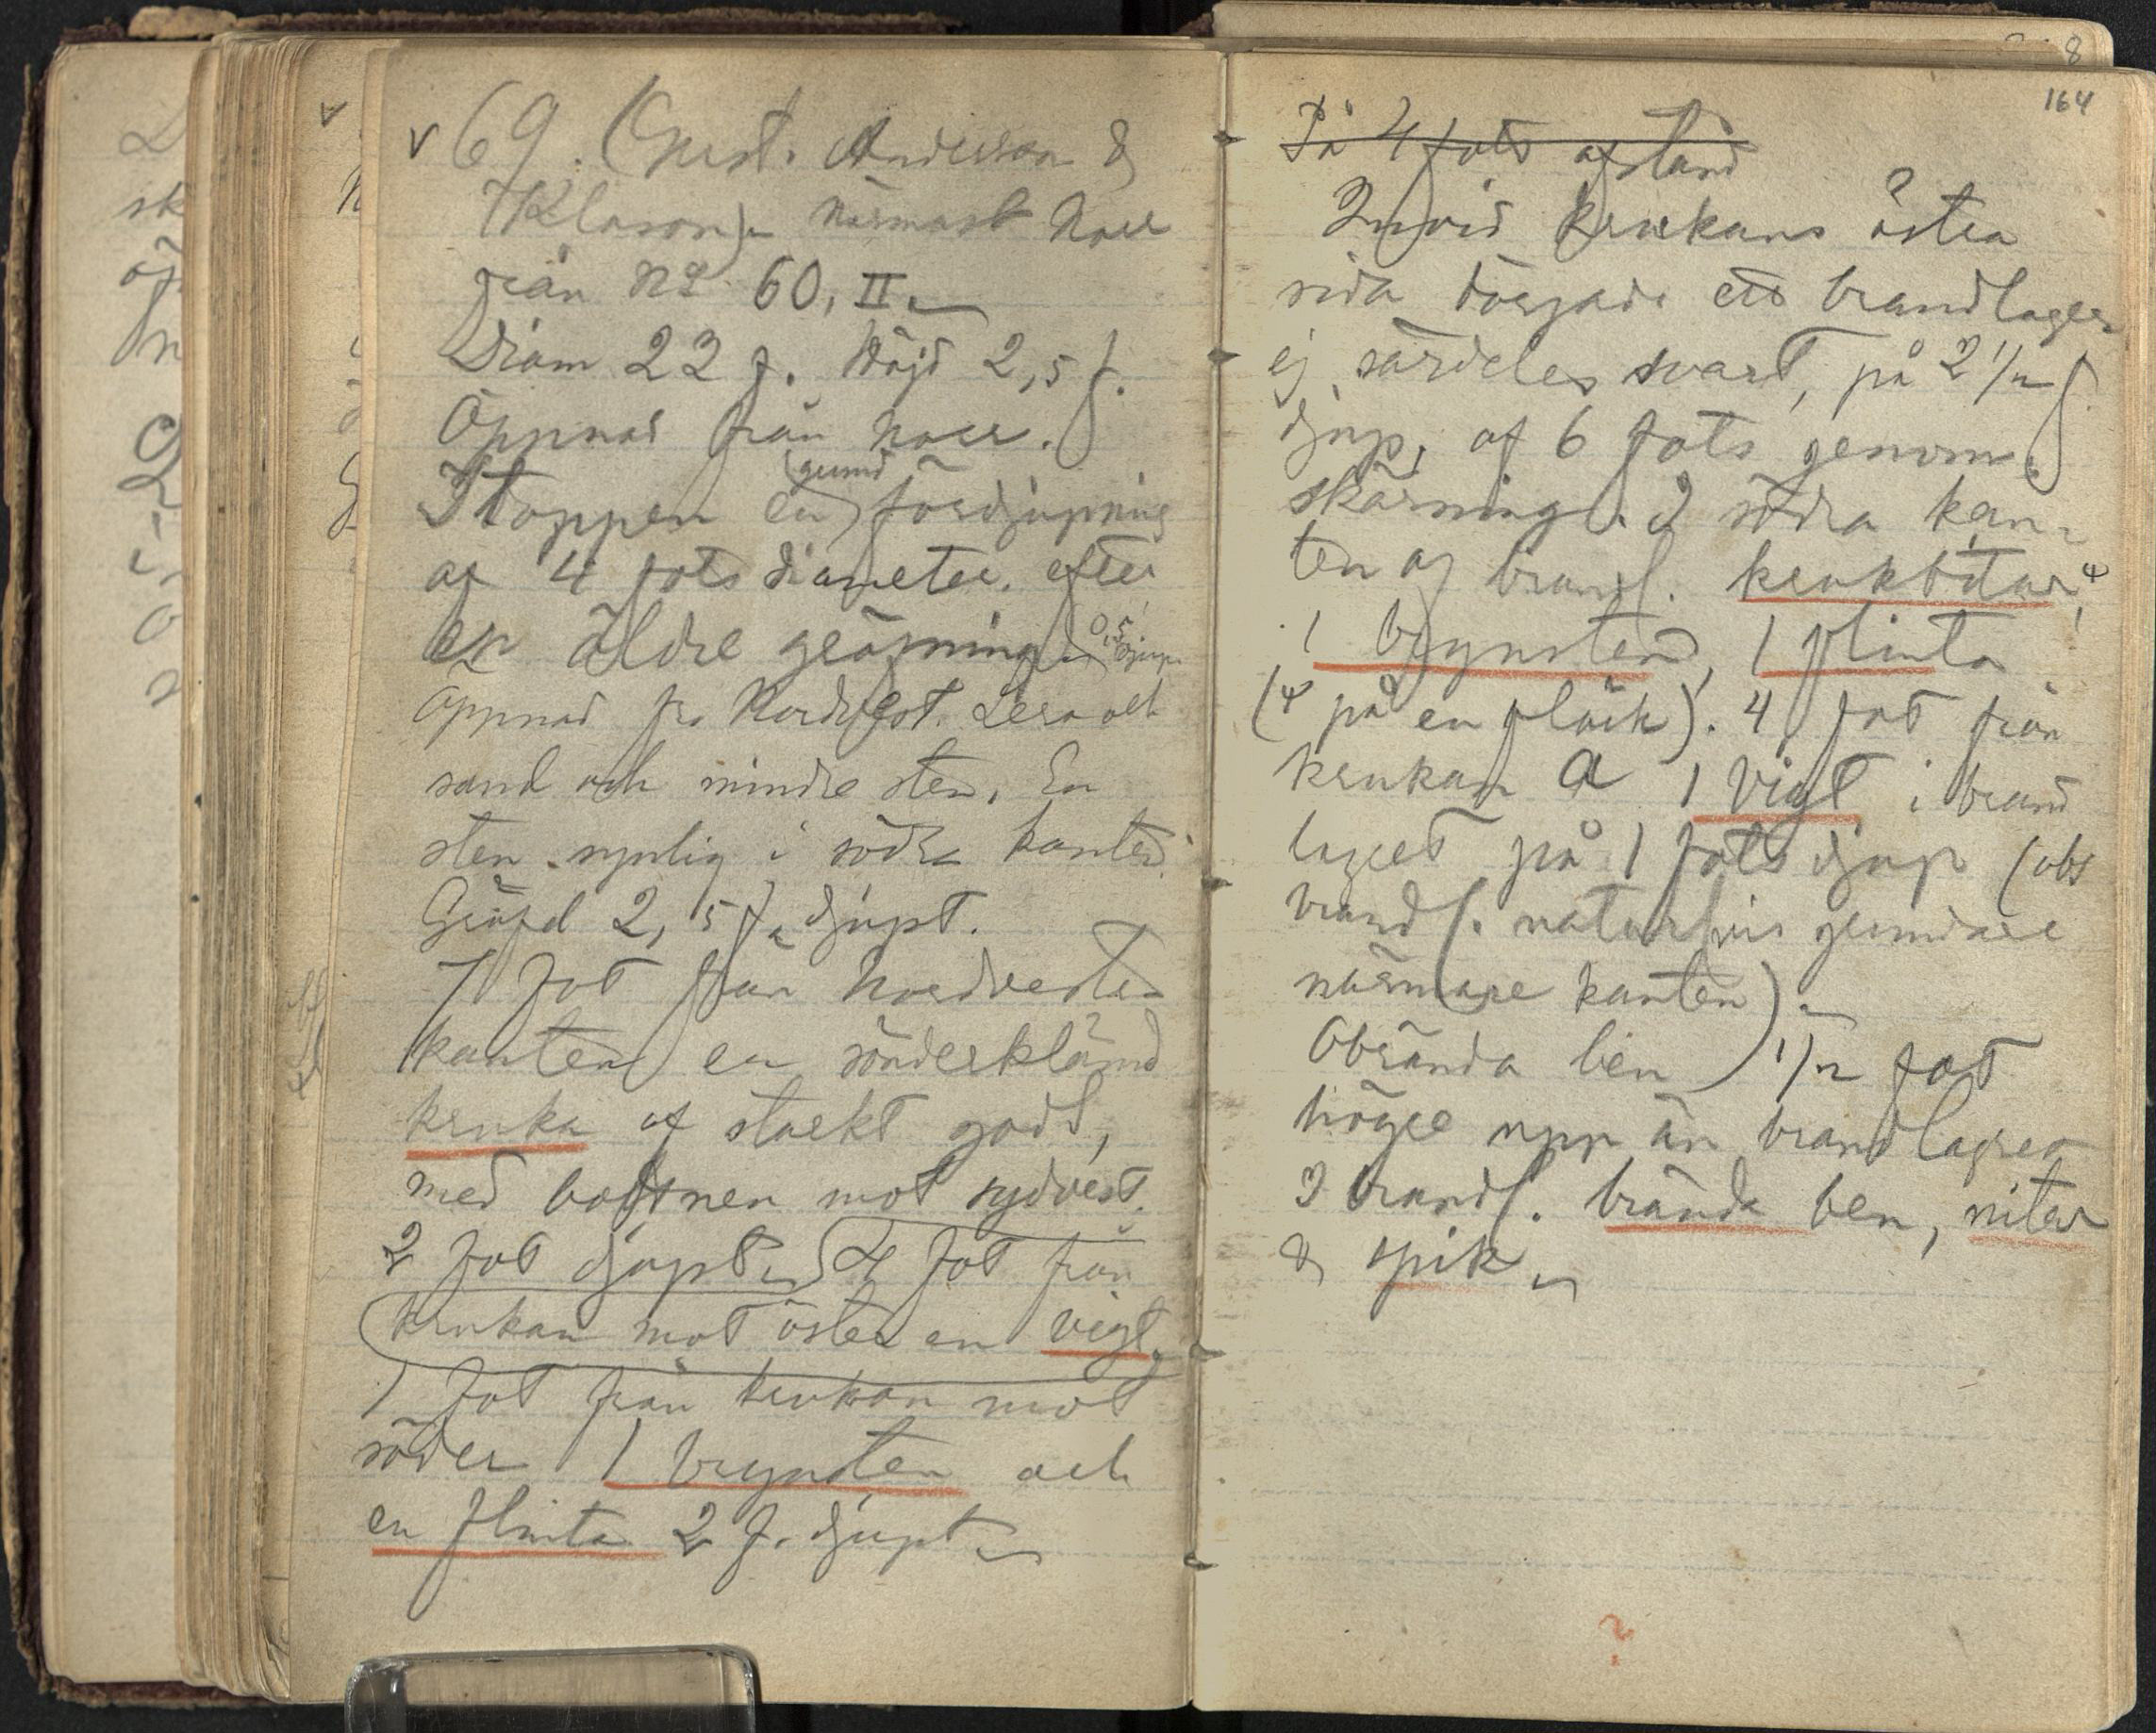 v 69. (Gust. Andersson &
Klason) närmast norr
från No 60, II.
Diam 22 f. Höjd 2,5 f.
Öppnad från norr.
I toppen en grund fördjupning
af 4 fots diameter. efter
en äldre gräfning. 0,5' djup
Öppnad fr. Nordvest. Lera och
sand och mindre sten. En
sten synlig i södra kanten.
Gräfd 2,5 f. djupt.
7 fot från nordvestra
kanten en sönderklämd
kruka af starkt gods,
med bottnen mot sydvest.
2 fot djupt. 4 fot från
krukan mot öster en vigt.
1 fot från krukan mot
söder 1 brynsten och
en flinta 2 f. djupt
164
På 4 fots afstånd
Invid krukans östra
sida började ett brandlager
ej särdeles svart, på 2 1/2 f.
djup, af 6 fots genom-
skärning. I södra kan-
ten af brandl. krukbitar, 4
1 brynsten, 1 flinta
(4 på en fläck). 4 fot från
krukan a 1 vigt i brand
lagret på 1 fots djup (obs
brandl. naturligtvis grundare
närmare kanten).
Obrända ben 1/2 fot
högre upp än brandlagret
I brandl. brända ben, nitar
& spik.
?